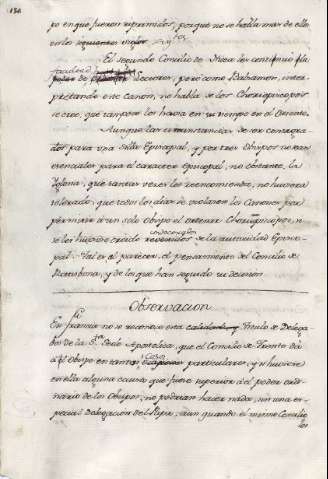 po en que fueron suprimidos, porque no se halla mas de ellos
en los siguientes siglos.
El segundo Concilio de Nicea les continuò la
facultad de Lectores, pero como Balsamon, inter-
pretando este canon, no habla de los Chorepiscopos
se cree, que tampoco los havia en su tiempo en el Oriente.
Aunque las circunstancias de ser consagra-
dos para una Silla Episcopal, y por tres Obispos no sean
esenciales para el caracter Episcopal, no obstante, la
Iglesia, que tantas veces los reconociendo, no huviera
tolerado, que todos los dias se violasen los Canones per
permitir à un solo Obispo el ordenar Chorepiscopos, si
se los huviera creido condecorados de la autoridad Episco-
pal. Tal es al parecer, el pensamiento del Concilio de
Narbona, y de los que han seguido su decision.
Observacion
En Francia no se reconoce este Titulo de Delega-
dos de la S.ta Sede Apostolica, que el Concilio de Trento dà
à el Obispo en tantos Casos particulares, y si huviere
en ella alguna causa que fuese superior à el poder ordi-
nario de los Obispos, no podrian hacer nada, sin una es-
pecial Delegacion del Papa, aun quando el mismo Concilio
los